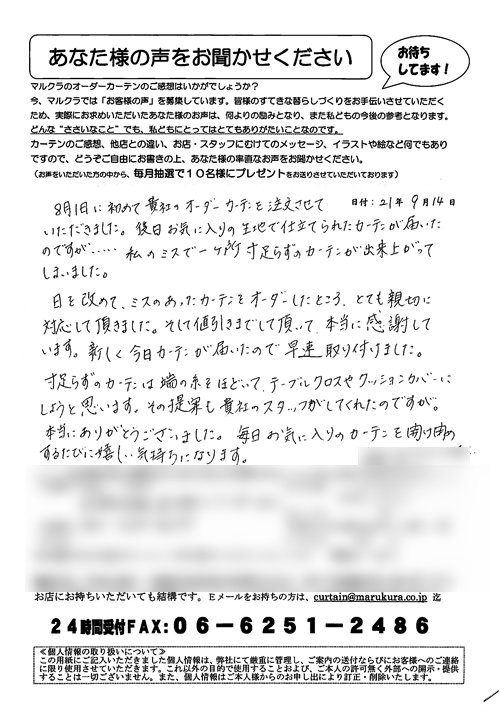 あなた様の声をお聞かせください
お待ち
してます！
マルクラのオーダーカーテンのご感想はいかがでしょうか？
今、マルクラでは「お客様の声」を募集しています。皆様のすてきな暮らしづくりをお手伝いさせていただく
ため、実際にお求めいただいたあなた様のお声は、何よりの励みとなり、また私どもの今後の参考となります。
どんな“ささいなこと”でも、私どもにとってはとてもありがたいことなのです。
カーテンのご感想、他店との違い、お店・スタッフにむけてのメッセージ、イラストや絵など何でもあり
ですので、どうぞご自由にお書きの上、あなた様の率直なお声をお聞かせください。
（お声をいただいた方の中から、毎月抽選で１０名様にプレゼントをお送りさせていただいております）
日付：21年 9月14日
8月1日に初めて貴社のオーダーカーテンを注文させて
いただきました。後日お気に入りの生地で仕立てられたカーテンが届いた
のですが…… 私のミスで一ヶ所 寸足らずのカーテンが出来上がって
しまいました。
日を改めて、ミスのあったカーテンをオーダーしたところ、とても親切に
対応して頂きました。そして値引きまでして頂いて、本当に感謝して
います。新しく今日カーテンが届いたので早速取り付けました。
寸足らずのカーテンは端の糸をほどいて、テーブルクロスやクッションカバーに
しようと思います。その提案も貴社のスタッフがしてくれたのですが。
本当にありがとうございました。毎日お気に入りのカーテンを開け閉め
するたびに嬉しい気持ちになります。
お店にお持ちいただいても結構です。Ｅメールをお持ちの方は、curtain@marukura.co.jp 迄
２４時間受付ＦＡＸ：０６－６２５１－２４８６
≪個人情報の取り扱いについて≫
この用紙にご記入いただきました個人情報は、弊社にて厳重に管理し、ご案内の送付ならびにお客様へのご連絡
に限り使用させていただきます。これ以外の目的で使用することおよび、ご本人の許可無く外部への開示・提供
することは一切ございません。また、個人情報はご本人様からのお申し出により訂正・削除いたします。